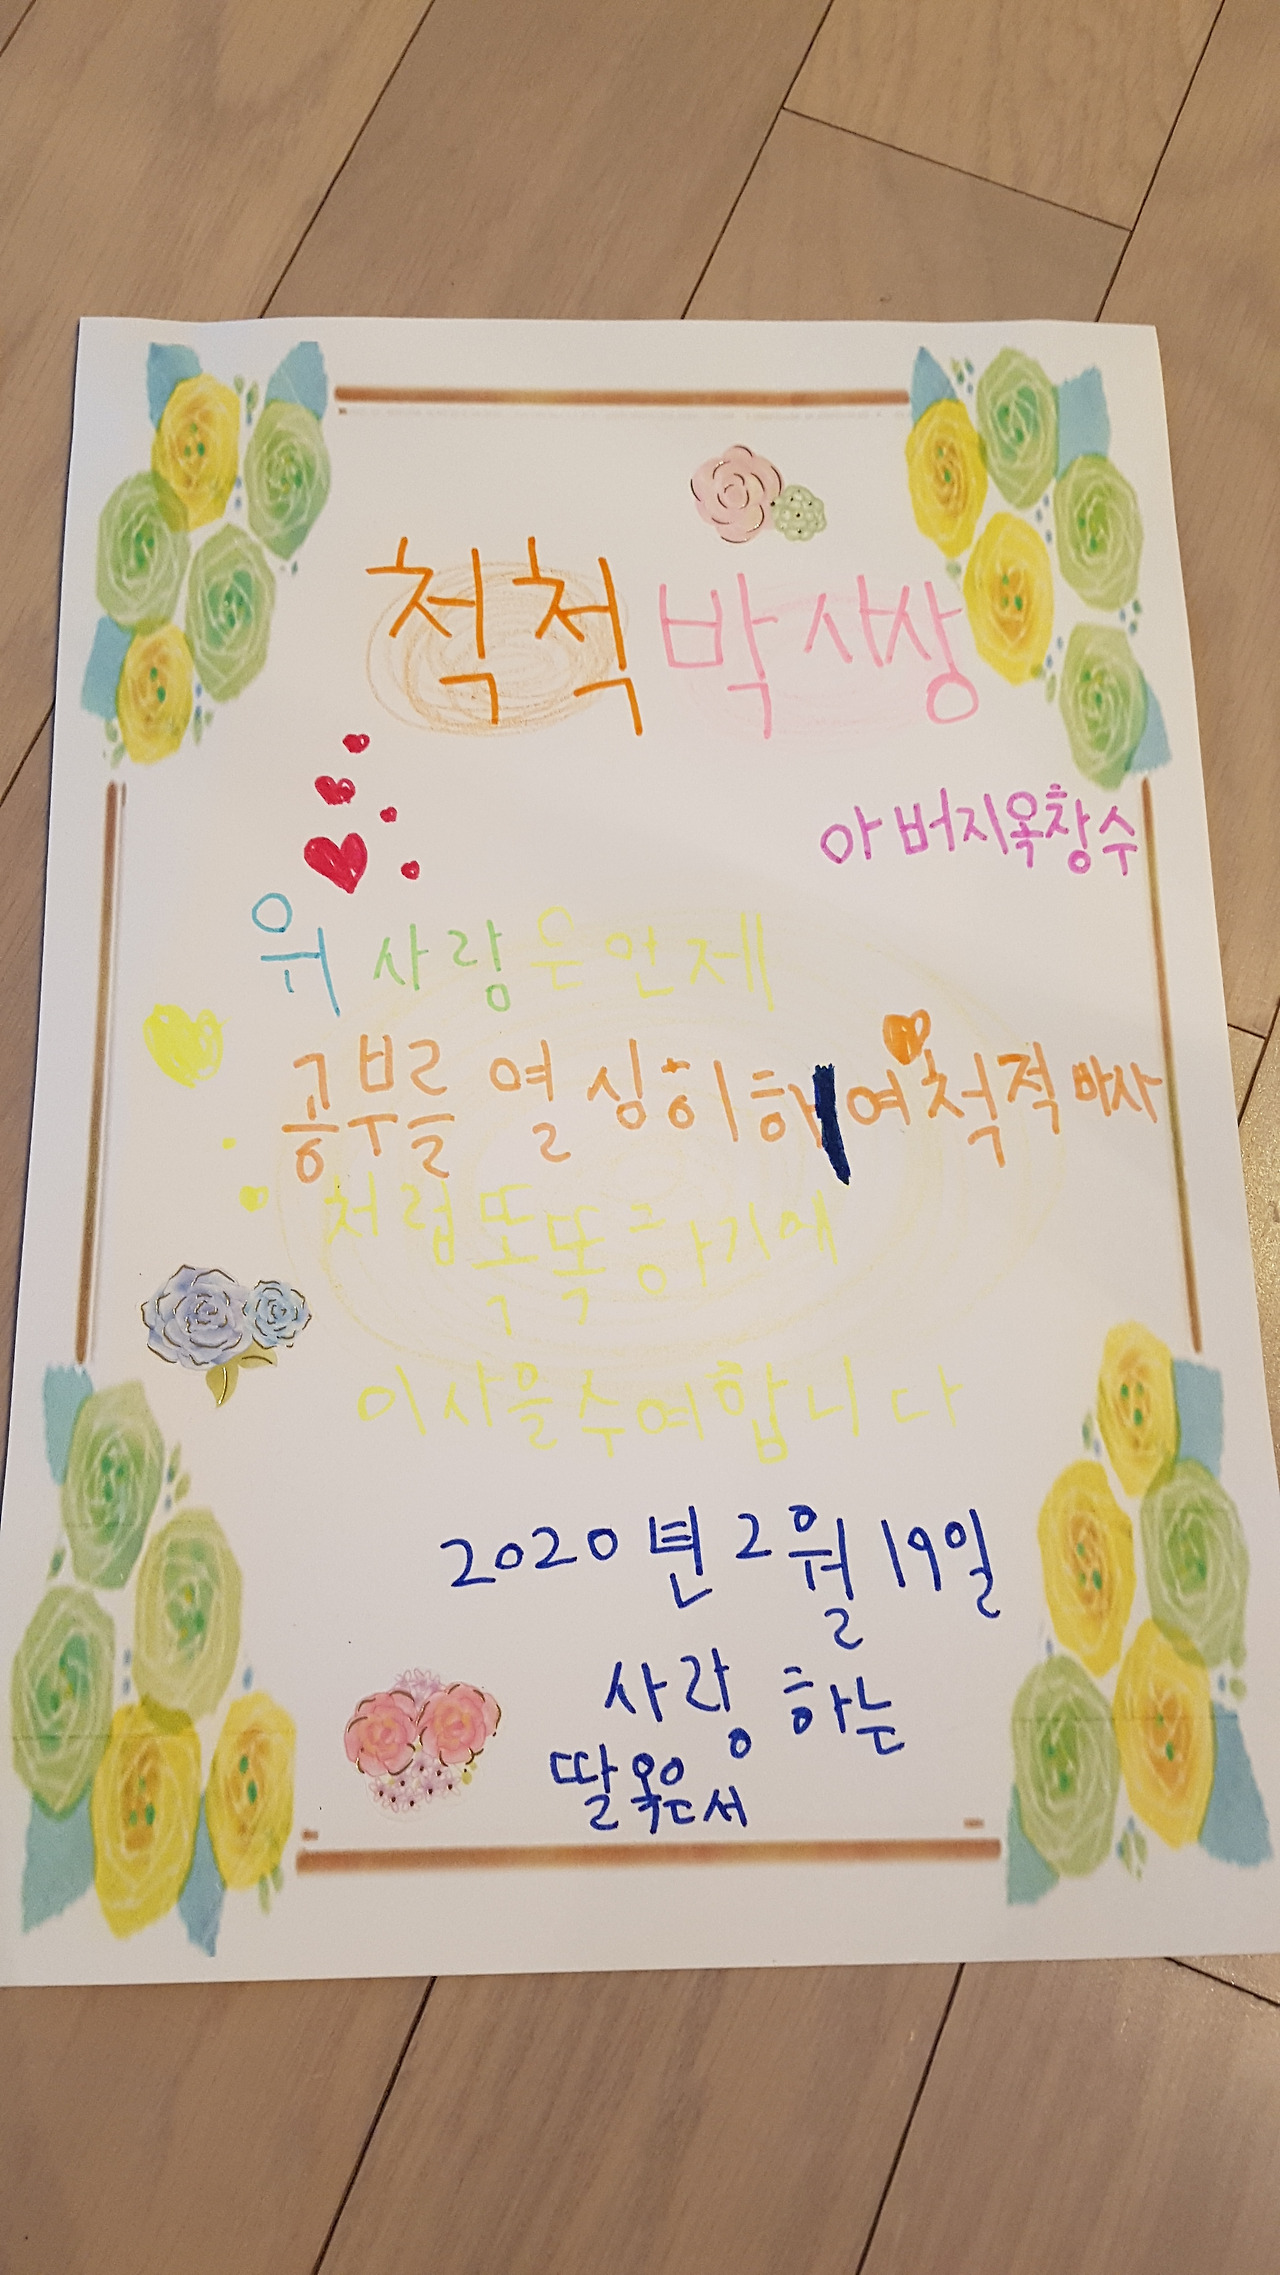 척척박사상
아버지옥창수
위 사랑은언제
공부를 열심히하여척척박사
처럼똑똑하기에
이사을수여합니다
2020년 2월 19일
사랑하는
딸옥은서